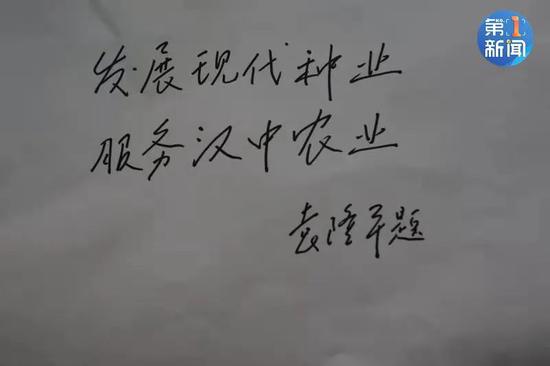 第1
新闻
发展现代种业
服务汉中农业
袁隆平题